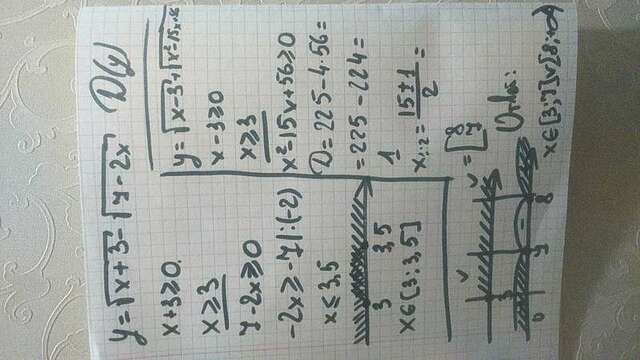 y=√x+3-√7-2x D(y)
x+3≥0.
x≥3
7-2x≥0
-2x≥-7|:(-2)
x≤3,5
3 3,5
x∈[3;3,5]
y=√x-3+√x²-15x+56
x-3≥0
x≥3
x²-15x+56≥0
D=225-4·56=
=225-224=
1
x1;2=15±1/2=
=[8
7
0 3 7 8
Отвы:
x∈[3;7]∪[8;+∞)